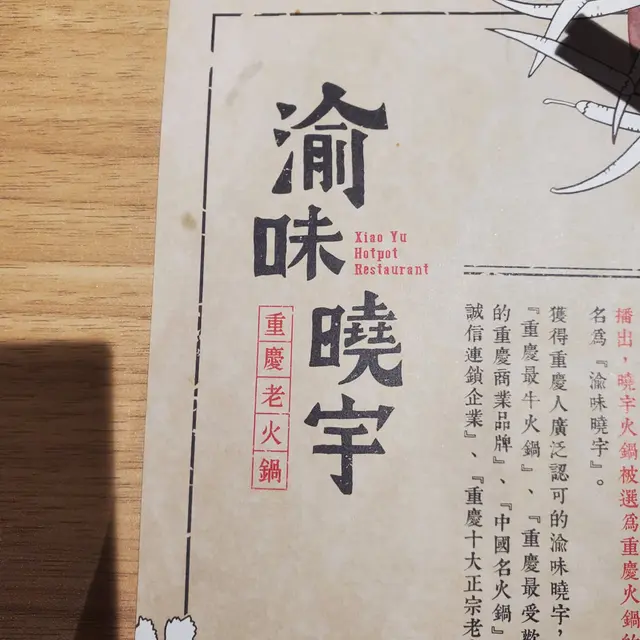 渝味
曉宇
Xiao Yu
Hotpot
Restaurant
重慶老火鍋
播出，曉宇火鍋被選爲重慶火鍋
名爲『渝味曉宇』。
獲得重慶人廣泛認可的渝味曉宇，
『重慶最牛火鍋』、『重慶最受歡
的重慶商業品牌』、『中國名火鍋』
誠信連鎖企業』、『重慶十大正宗老